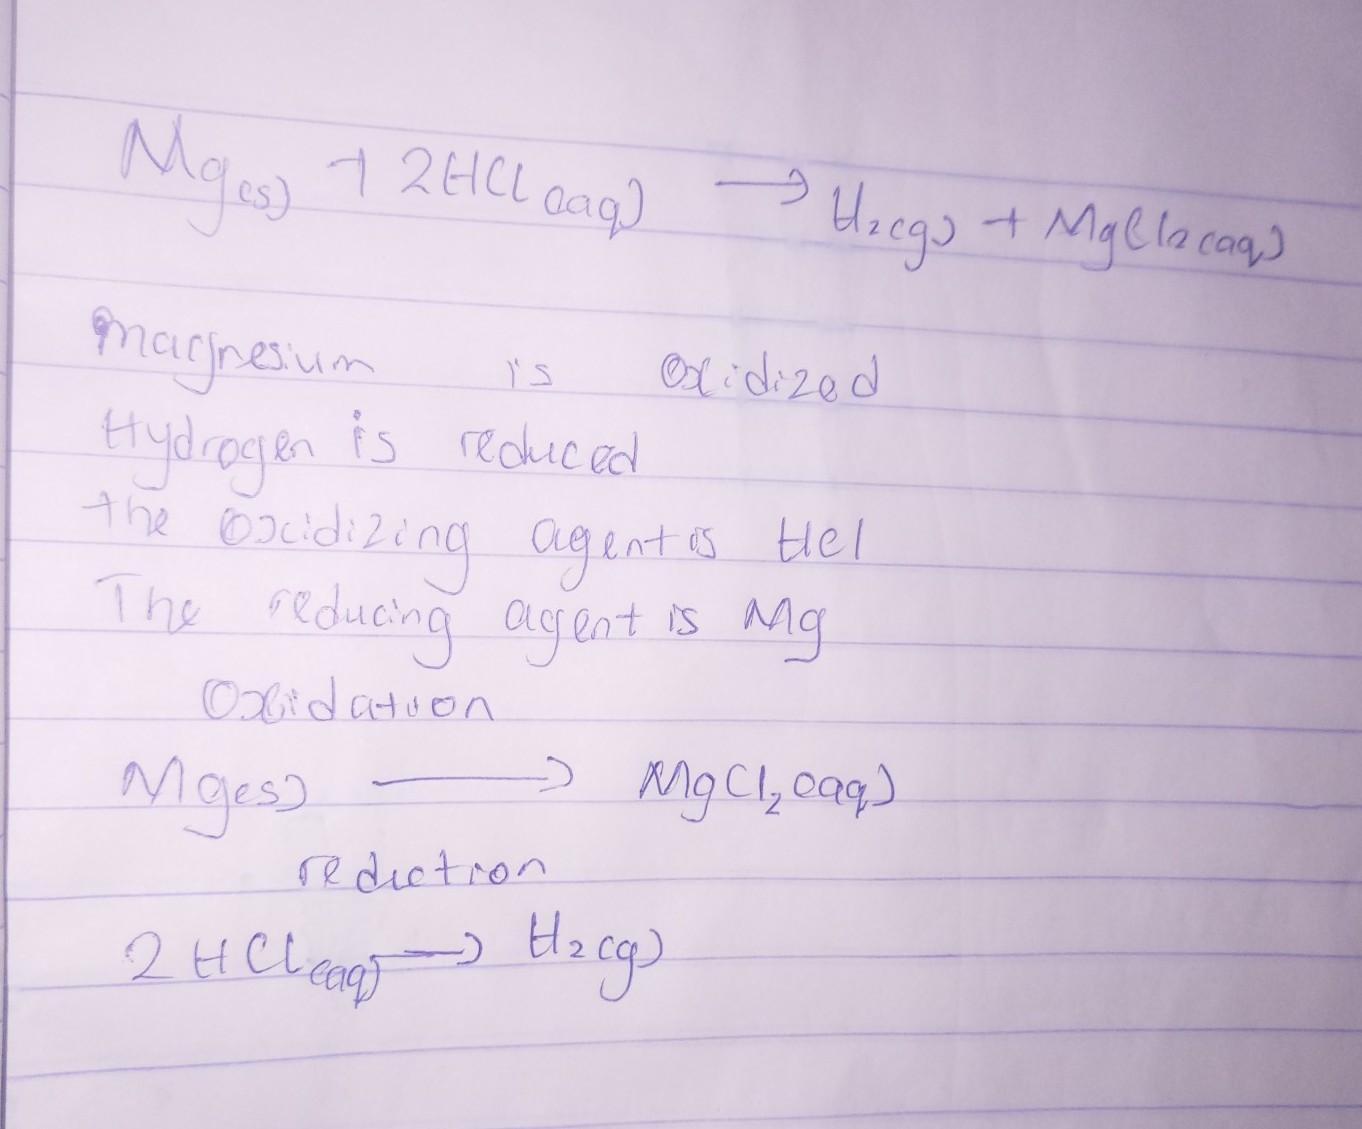 Mg(s) + 2HCl(aq) → H₂(g) + MgCl₂(aq)
Magnesium is Oxidized
Hydrogen is reduced
the oxidizing agent is HCl
The reducing agent is Mg
Oxidation
Mg(s) → MgCl₂(aq)
reduction
2HCl(aq) → H₂(g)